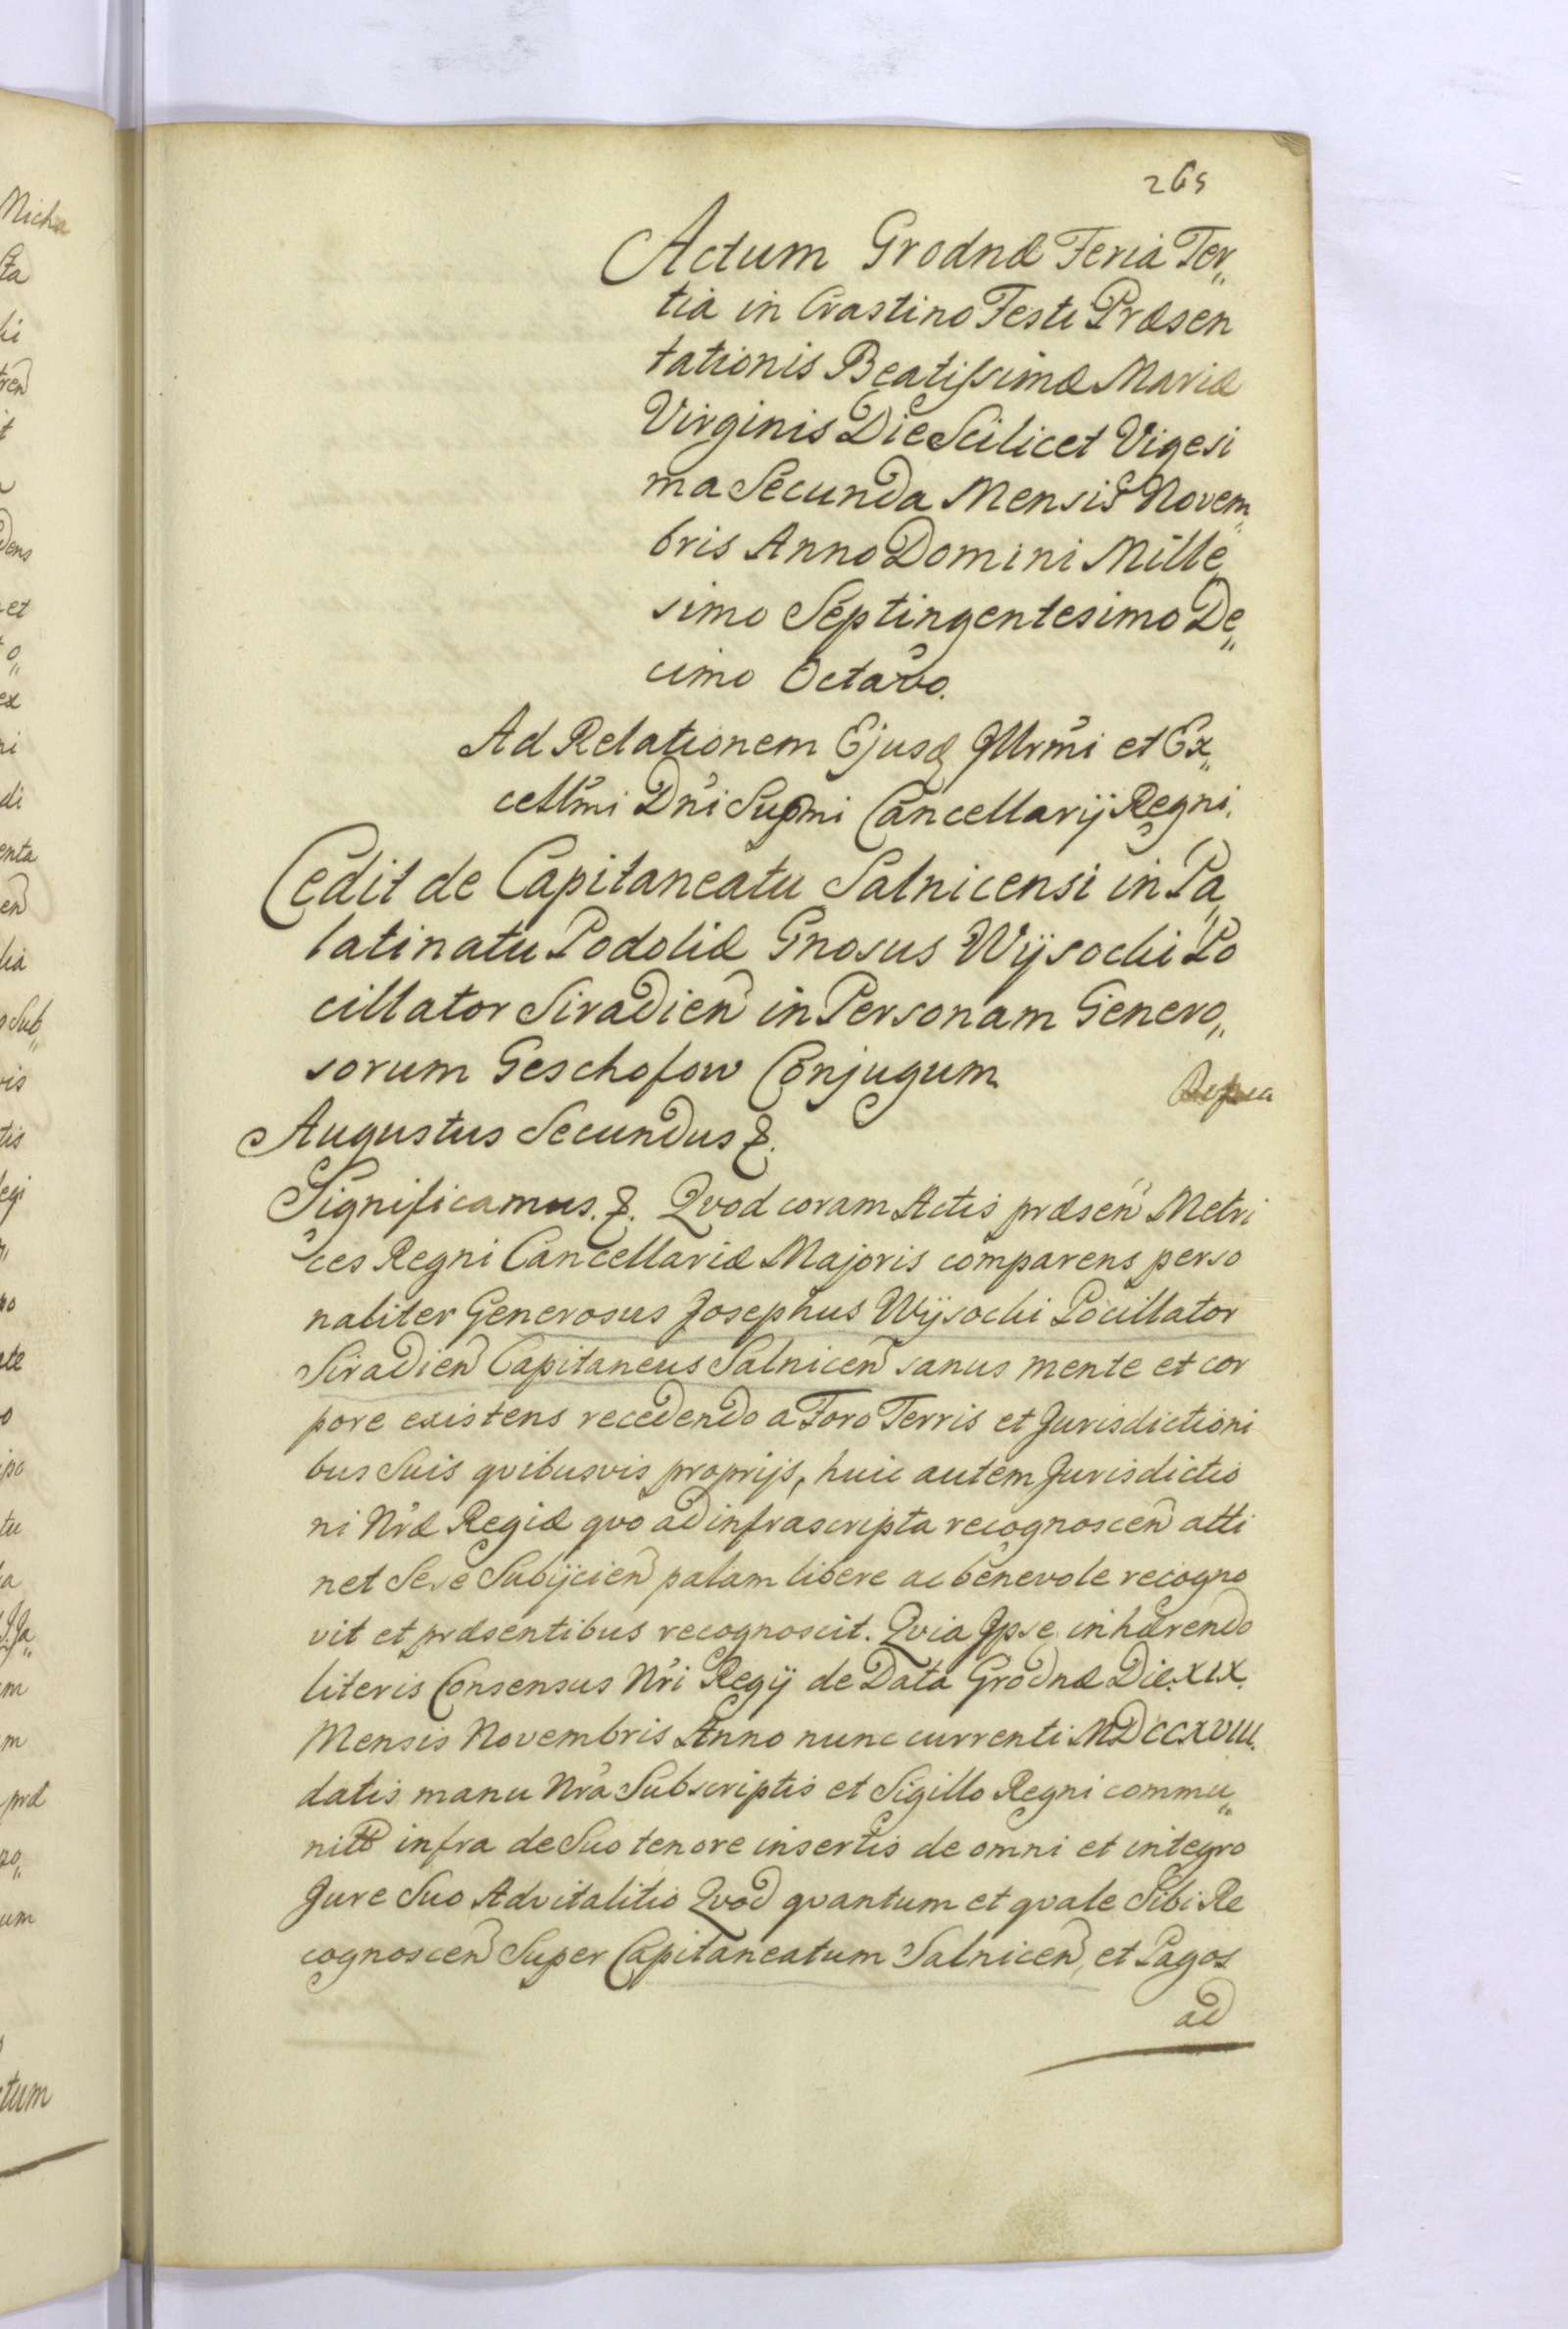 265
Actum Grodnæ Feria Ter„
tia in Crastino Festi Præsen
tationis Beatissimæ Mariæ
Virginis Die Scilicet Vigesi
ma Secunda Mensis Novem„
bris Anno Domini Mille„
simo Septingentesimo De„
cimo Octavo.
Ad Relationem Ejusd Jllrmi et Ex„
cellmi Dni Supmi Cancellarij Regni.
Cedit de Capitaneatu Salnicensi in Pa„
latinatu Podoliæ Gnosus Wÿsocki Po
cillator Siradien in Personam Genero„
sorum Geschofow Conjugum
Augustus Secundus &.
Significamus. &. Qvod coram Actis præsen Metri
ces Regni Cancellariæ Majoris comparens perso
naliter Generosus Josephus Wÿsocki Pocillator
Siradien Capitaneus Salnicen sanus mente et cor
pore existens recedendo a Foro Terris et Jurisdictioni
bus Suis qvibusvis proprijs, huic autem Jurisdictio
ni Nræ Regiæ qvo ad infrascripta recognoscen atti
net Sese Subijcien palam libere ac benevole recogno
vit et præsentibus recognoscit. Qvia Jpse inhærendo
literis Consensus Nri Regij de Data Grodnæ Die. XIX.
Mensis Novembris Anno nunc currenti MDCCXVIII.
datis manu Nra Subscriptis et Sigillo Regni commu„
nitt infra de Suo tenore insertis de omni et integro
Jure Suo Advitalitio Qvod qvantum et qvale Sibi Re
cognoscen Super Capitaneatum Salnicen, et Pagos
ad